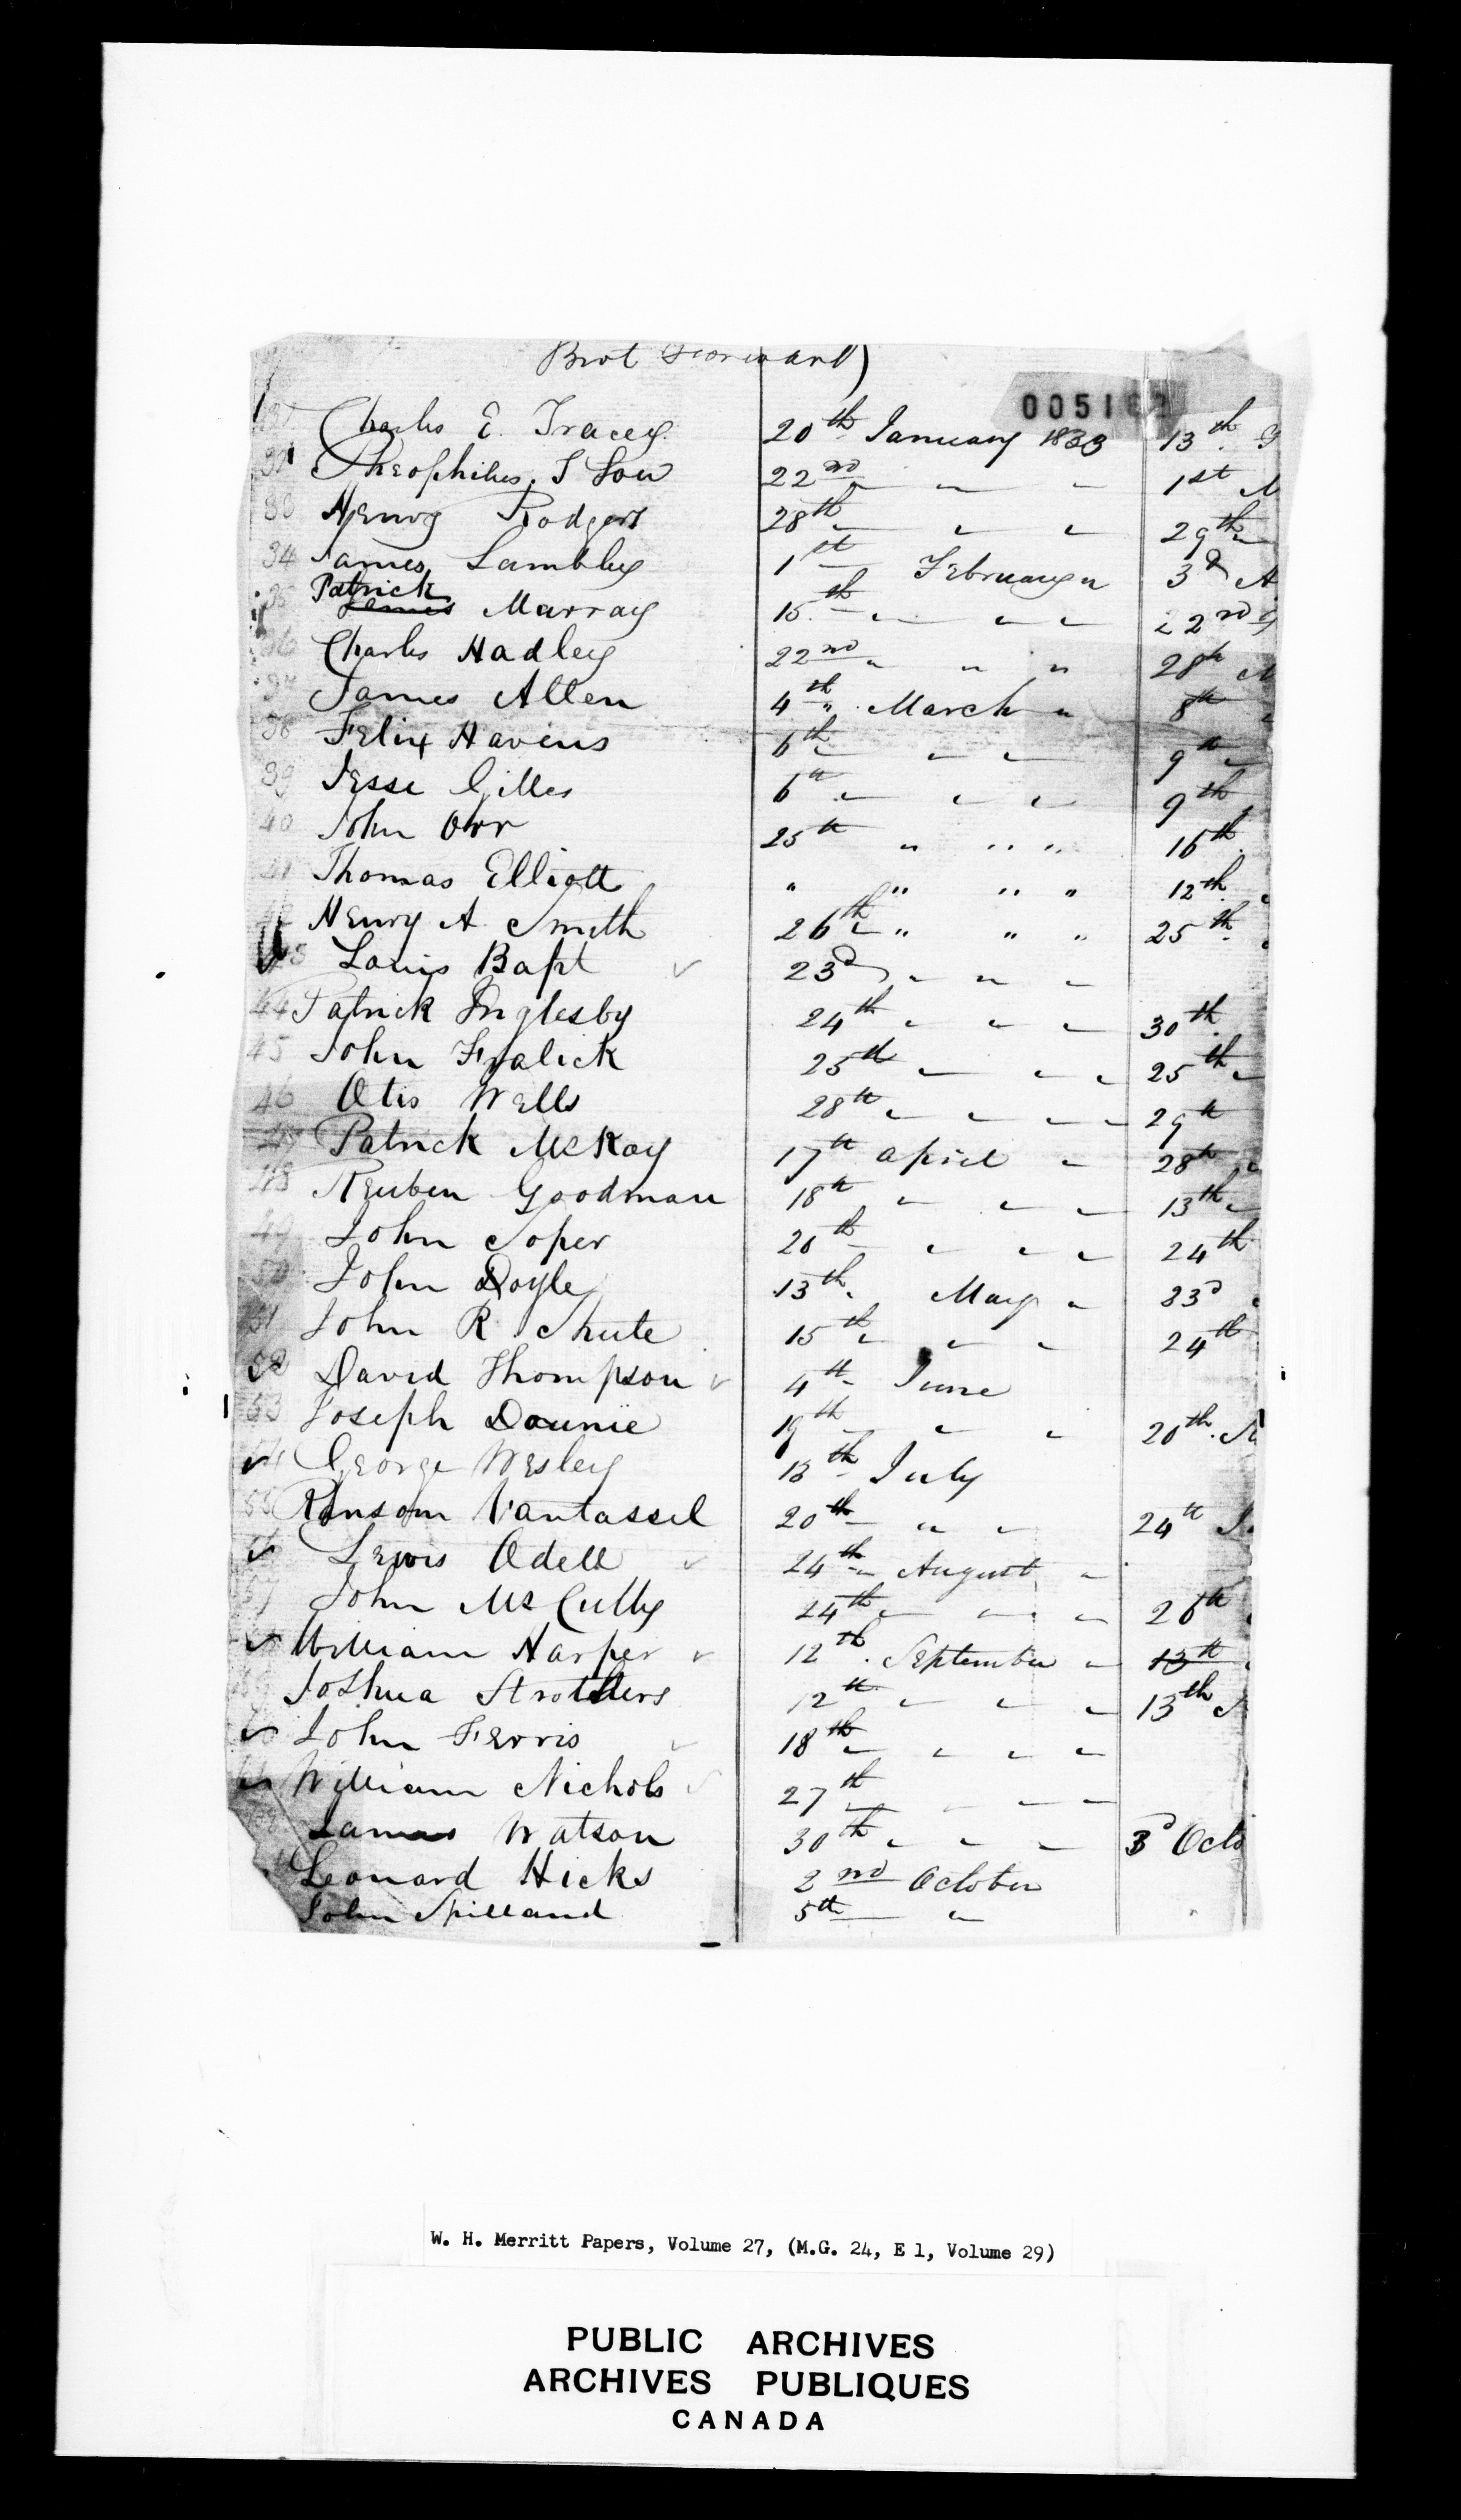 Brot Forward)
0051
Charles E. Tracey 20th January 1833 13th
32 Theophilus I Low 22nd " " " 1st
33 Henry Rodgers 28th " " " 29th "
34 James Lambly 1st February " 3d A
35 Patrick James Murray 15th " " " 22nd
36 Charles Hadley 22nd " " " 28th
37 James Allen 4th " March " 8th
38 Felix Havens 6th " " " 9th "
39 Jesse Gilles 6th " " " 9th
40 John Orr 25th " " " 16th
41 Thomas Elliott " " " " 12th
42 Henry A Smith 26th " " " 25th
43 Louis Bapt 23d " " "
44 Patrick Inglesby 24th " " " 30th
45 John Fralick 25th " " " 25th "
46 Otis Wells 28th " " " 29th
47 Patrick McKay 17th april " 28th
48 Reuben Goodman 18th " " " 13th "
49 John Soper 20th " " " 24th
50 John Doyle 13th May " 23d
51 John R Shute 15th " " " 24th
52 David Thompson 4th June
53 Joseph Dounie 19th " " 20th
54 George Wesley 13th July
55 Ransom Vantassel 20th " " 24th
Lewis Odell 24th August "
57 John McCully 24th " " " 26th
William Harper 12th September " 13th
Joshua Strothers 12th " " " 13th
John Ferris 18th " " "
William Nichols 27th " " "
James Watson 30th " " " 3d Octo
Leonard Hicks 2nd October
John Spilland 5th "
W. H. Merritt Papers, Volume 27, (M.G. 24, E 1, Volume 29)
PUBLIC ARCHIVES
ARCHIVES PUBLIQUES
CANADA